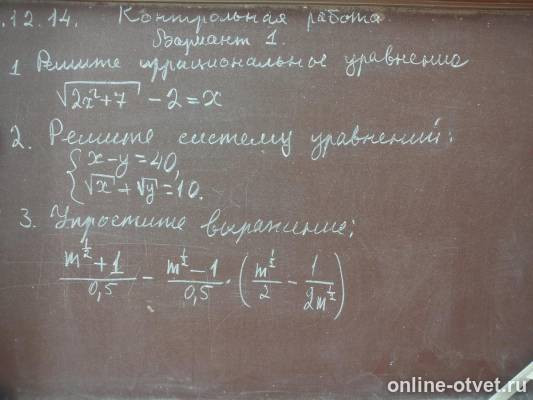 .12.14. Контрольная работа
Вариант 1.
1 Решите иррациональное уравнение
√(2x²+7) - 2 = x
2. Решите систему уравнений:
{ x - y = 40,
{ √x + √y = 10.
3. Упростите выражение:
(m^(1/2) + 1)/0,5 - (m^(1/2) - 1)/0,5 · (m^(1/2)/2 - 1/(2m^(1/2)))
online-otvet.ru